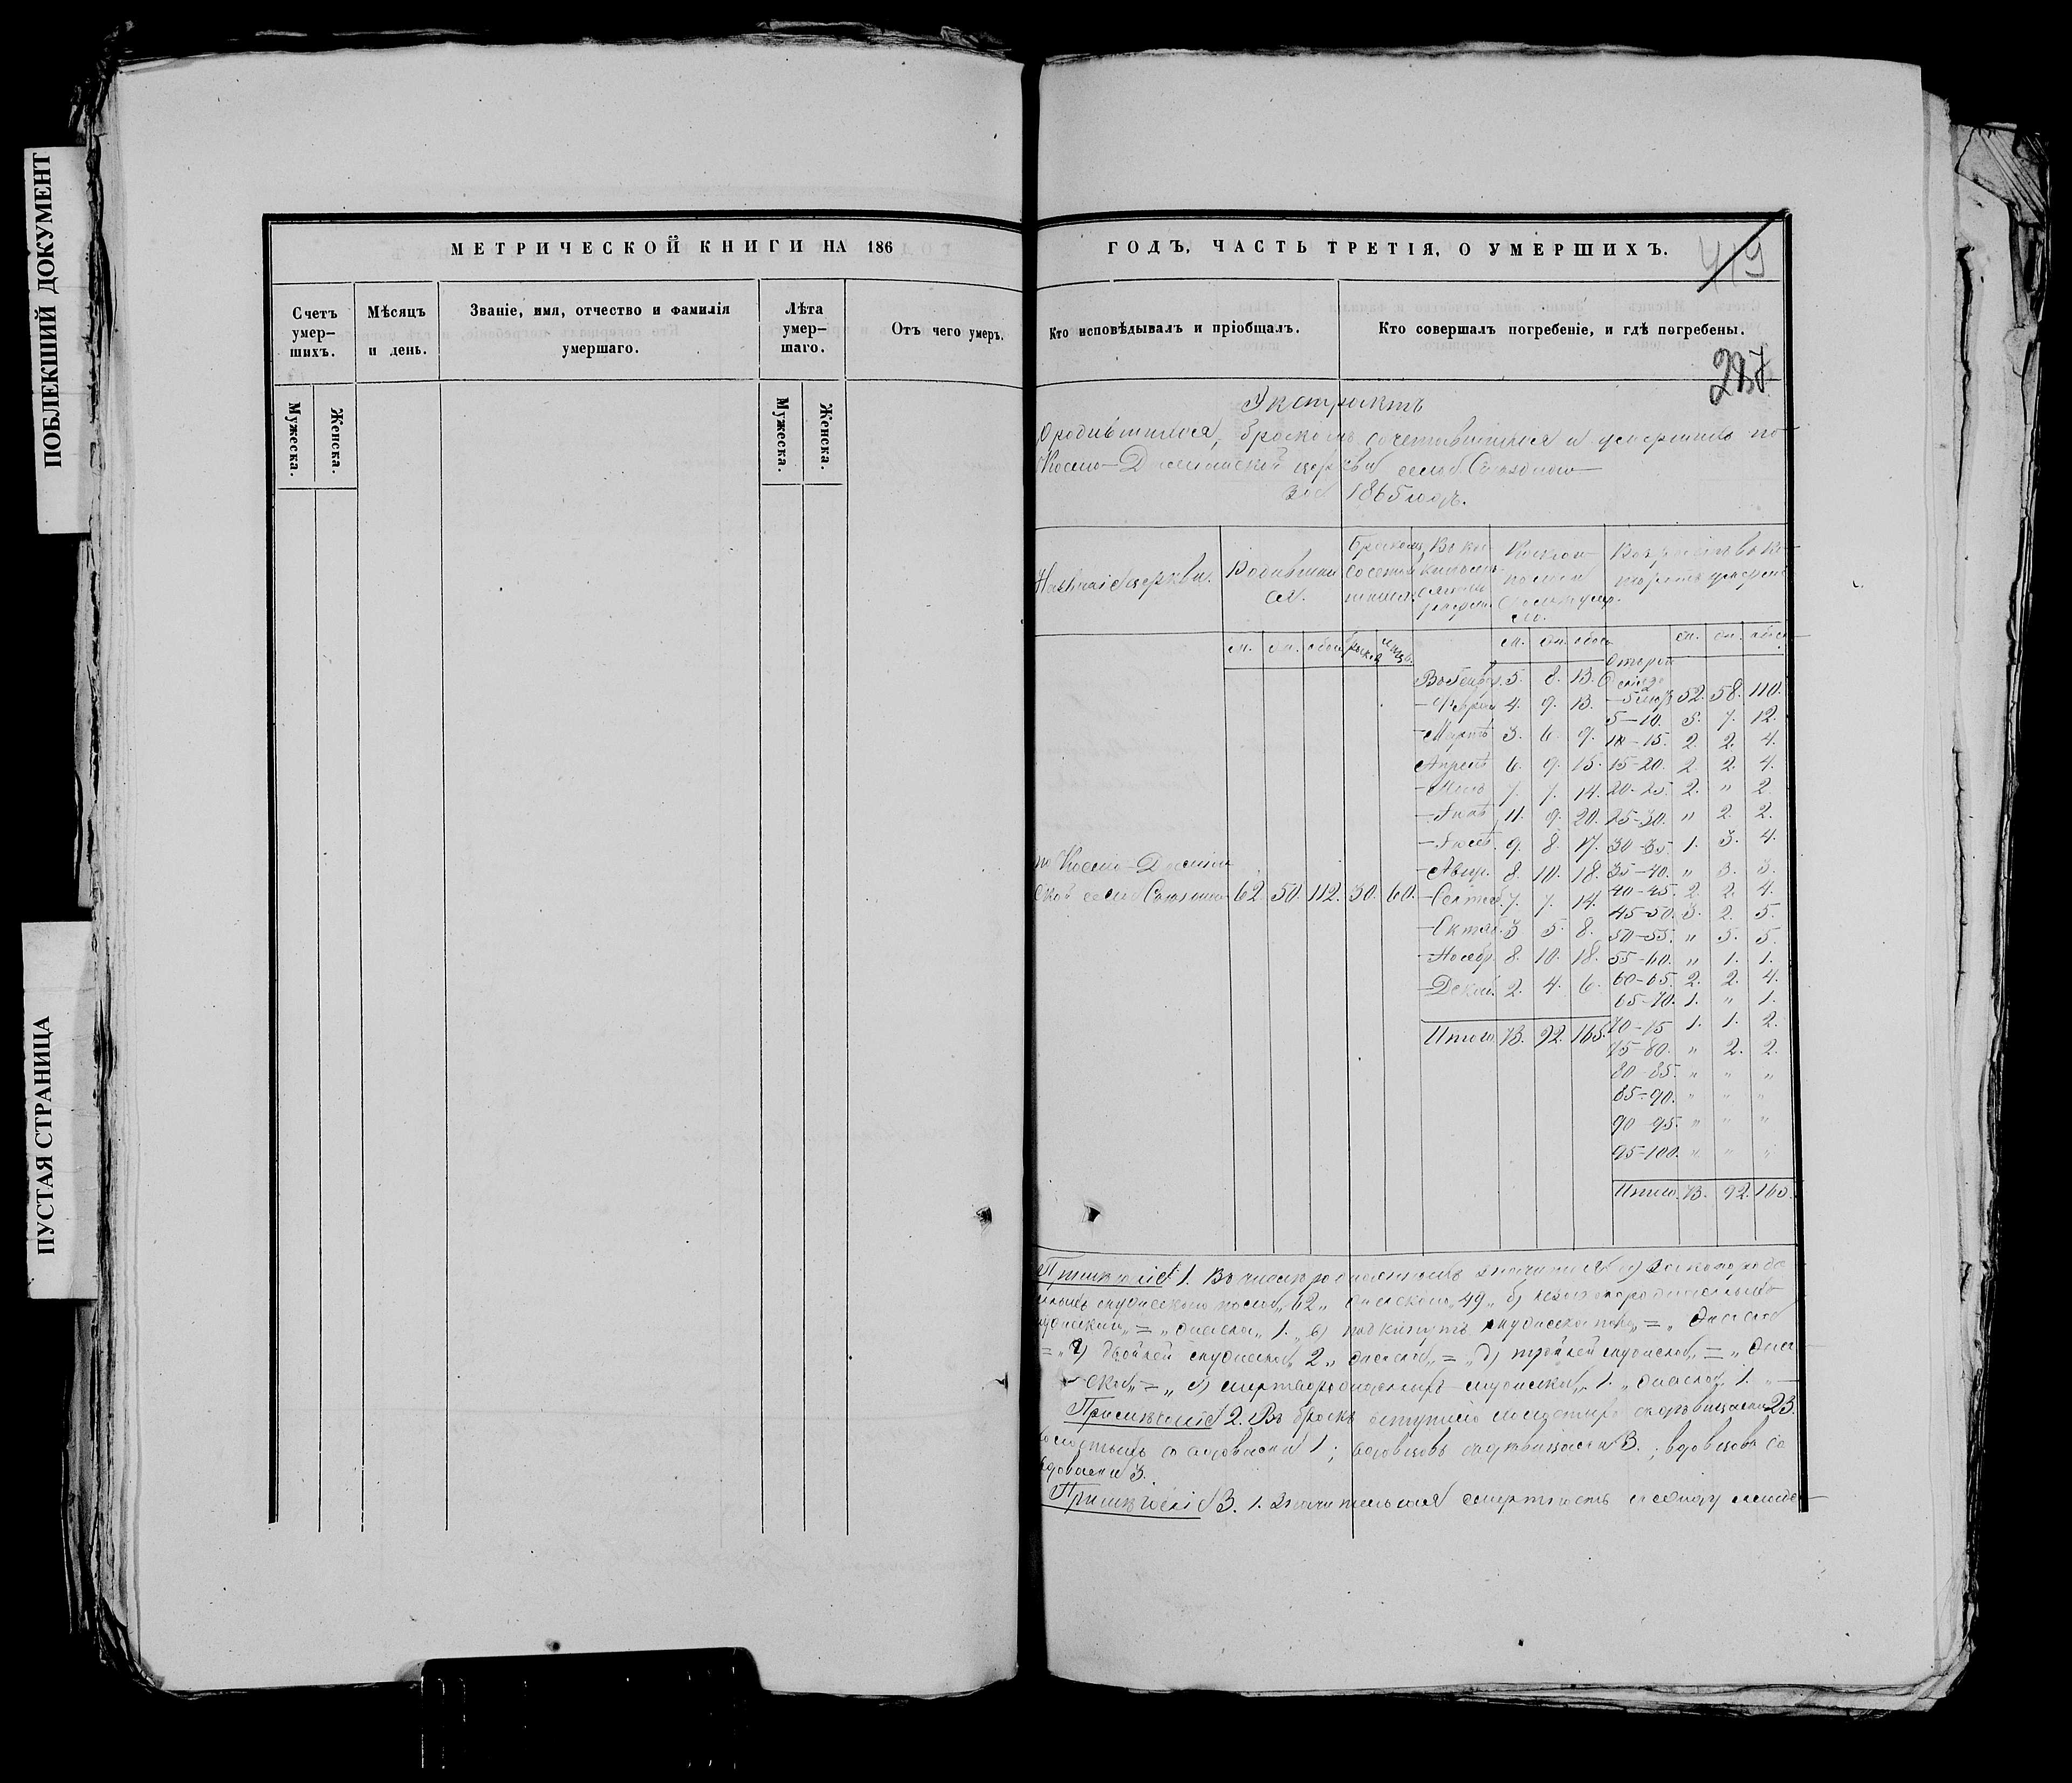 ПОБЛЕКШИЙ ДОКУМЕНТ
ПУСТАЯ СТРАНИЦА
МЕТРИЧЕСКОЙ КНИГИ НА 186
Счетъ умер-шихъ.
Мѣсяцъ и день.
Званіе, имя, отчество и фамилія умершаго.
Лѣта умер-шаго.
Отъ чего умеръ.
Мужеска.
Женска.
Мужеска.
Женска.
ГОДЪ, ЧАСТЬ ТРЕТІЯ, О УМЕРШИХЪ.
419
Кто исповѣдывалъ и пріобщалъ.
Кто совершалъ погребеніе, и гдѣ погребены.
Экстрактъ
О родившихся, бракомъ сочетавшихся и умершихъ по
Космо-Даміанской церкви села
за 1865 годъ.
Названіе церкви.
Родивших ся.
м. ж. обоего
м. ж. обоего
м. ж. обоего
Въ Генвар. 5. 8. 13.
-Февралѣ 4. 9. 13.
-Мартѣ 3. 6. 9.
Апрелѣ 6. 9. 15.
-Маѣ 7. 7. 14.
-Іюнѣ 11. 9. 20.
-Іюлѣ 9. 8. 17.
-Авгус. 8. 10. 18.
-Сентяб. 7. 7. 14.
-Октяб. 3 5. 8.
-Ноябр. 8. 10. 18.
-Декаб. 2. 4. 6.
Итого 73. 92. 165.
-5 52. 58. 110.
5-10. 5. 7. 12.
10-15. 2. 2. 4.
15-20. 2. 2. 4.
20-25. 2. " 2
25-30. " 2. 2.
30-35. 1. 3. 4.
35-40. " 3. 3.
40-45. 2. 2. 4.
45-50. 3. 2. 5.
50-55. " 5. 5.
55-60. " 1. 1.
60-65. 2. 2. 4.
65-70. 1. " 1.
70-75 1. 1. 2.
75-80. " 2. 2.
80-85. " " "
85-90. " " "
90-95. " " "
95-100. " " "
Итого 73. 92. 165.
по Космо-Даміан
ской села 62. 50. 112. 30. 60.
Примѣчаніе 1. Въ числѣ рожденныхъ значится а) законорож
мужескаго пола „62„ женскаго „49„ б) незаконорожденныхъ
= „ женска „ 1. „ в) подкинутъ мужеска пола „ = „ женска
= „ г) двойней мужеска „ 2 „ женска „ = „ д) тройней мужеска „ = „ жен
ска „ = „ е) мертворожденныхъ мужска „ 1. „ женска „ 1. „
Примѣчаніе 2. Въ бракъ вступило холостыхъ съ дѣвицами 23.
холостыхъ со вдовами 1; вдовцовъ съ дѣвицами 3.; вдовцовъ со
вдовами 3.
Примѣчаніе 3. 1. Значительная смертность между младе-